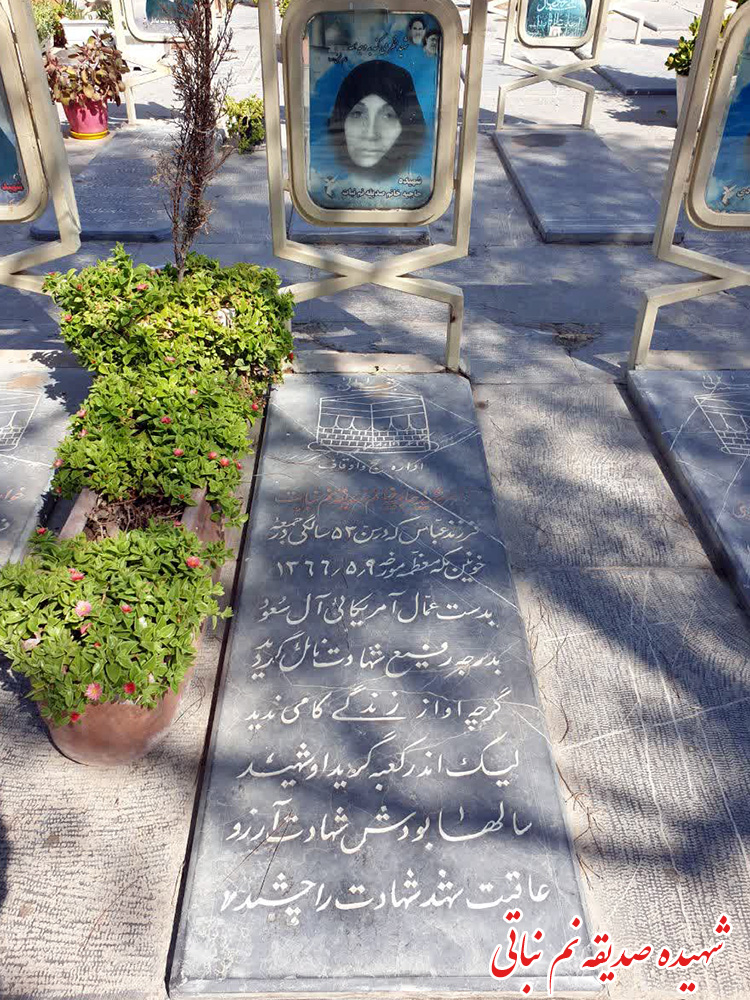 شهیده
حاجیه خانم صدیقه نم نبات
اداره حج و اوقاف
فرزند عباس که در سن ۵۳ سالگی در جمعه
خونین مکه معظمه مورخه ۱۳۶۶٫۵٫۹
بدست عمال آمریکائی آل سعود
بدرجه رفیع شهادت نائل گردید
گرچه او از زندگی کامی ندید
لیک اندر کعبه گردید او شهید
سالها بودش شهادت آرزو
عاقبت شهد شهادت را چشید
شهیده صدیقه نم نباتی